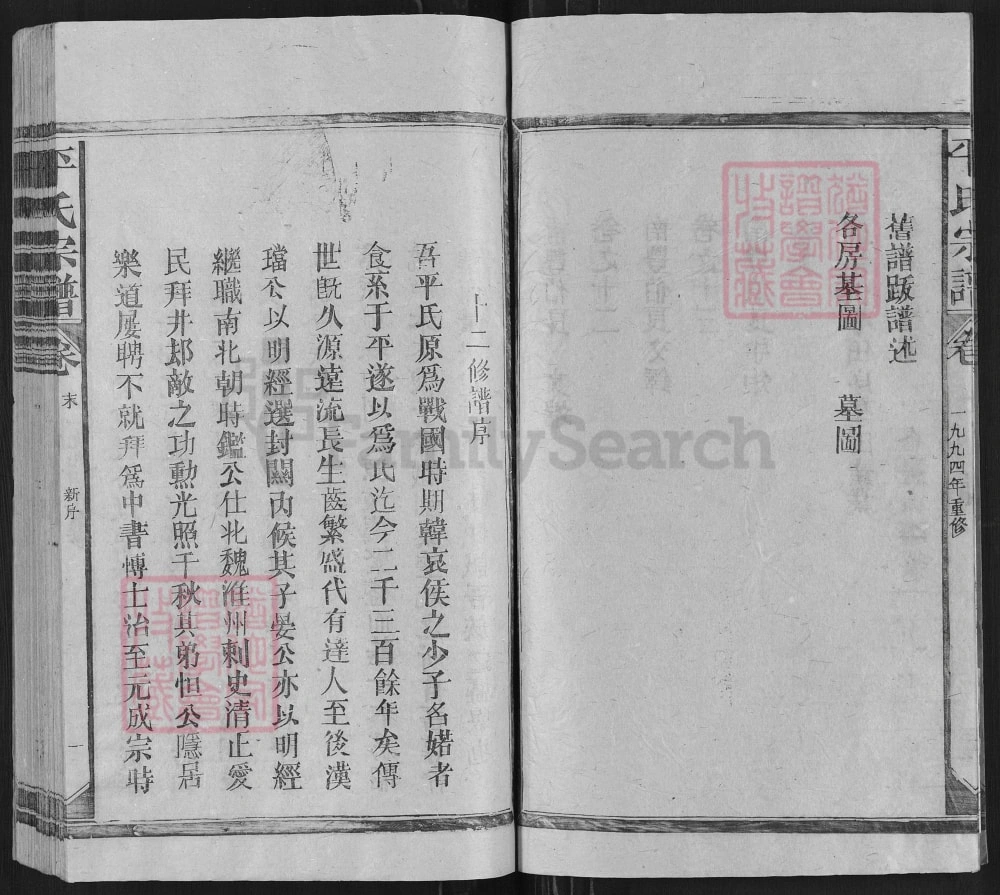 平氏宗譜
卷
一九九四年重修
舊譜跋譜述
各房基圖 墓圖
十二修譜序
吾平氏原爲戰國時期韓哀侯之少子名婼者
食采于平遂以爲氏迄今二千三百餘年矣傳
世旣久源遠流長生齒繁盛代有達人至後漢
璫公以明經選封關內候其子晏公亦以明經
繼職南北朝時鑑公仕北魏淮州刺史清正愛
民拜井刼敵之功勳光照千秋其弟恒公隱居
樂道屢聘不就拜爲中書博士治至元成宗時
平氏宗譜
卷末
新序
一
FamilySearch